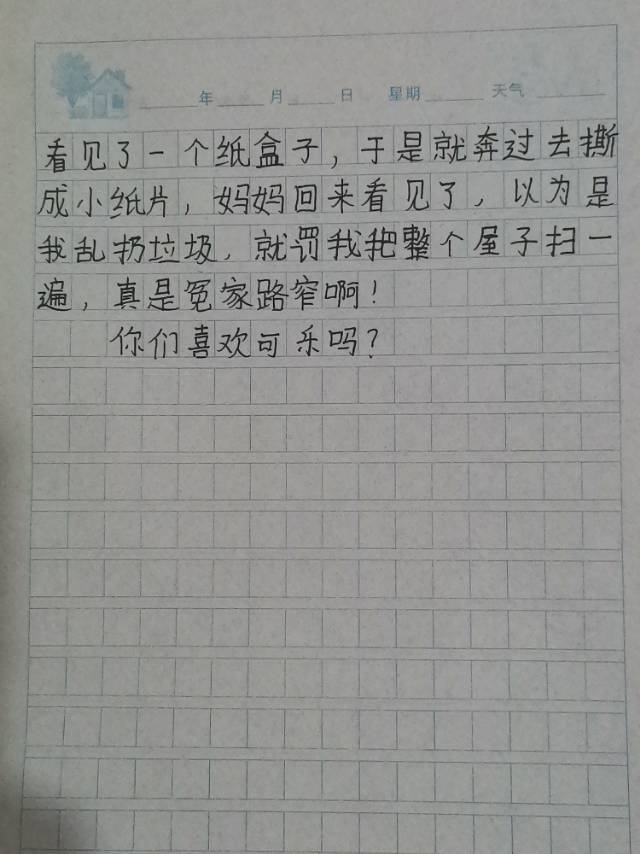 年 月 日 星期 天气
看见了一个纸盒子，于是就奔过去撕
成小纸片，妈妈回来看见了，以为是
我乱扔垃圾，就罚我把整个屋子扫一
遍，真是冤家路窄啊！
你们喜欢可乐吗？